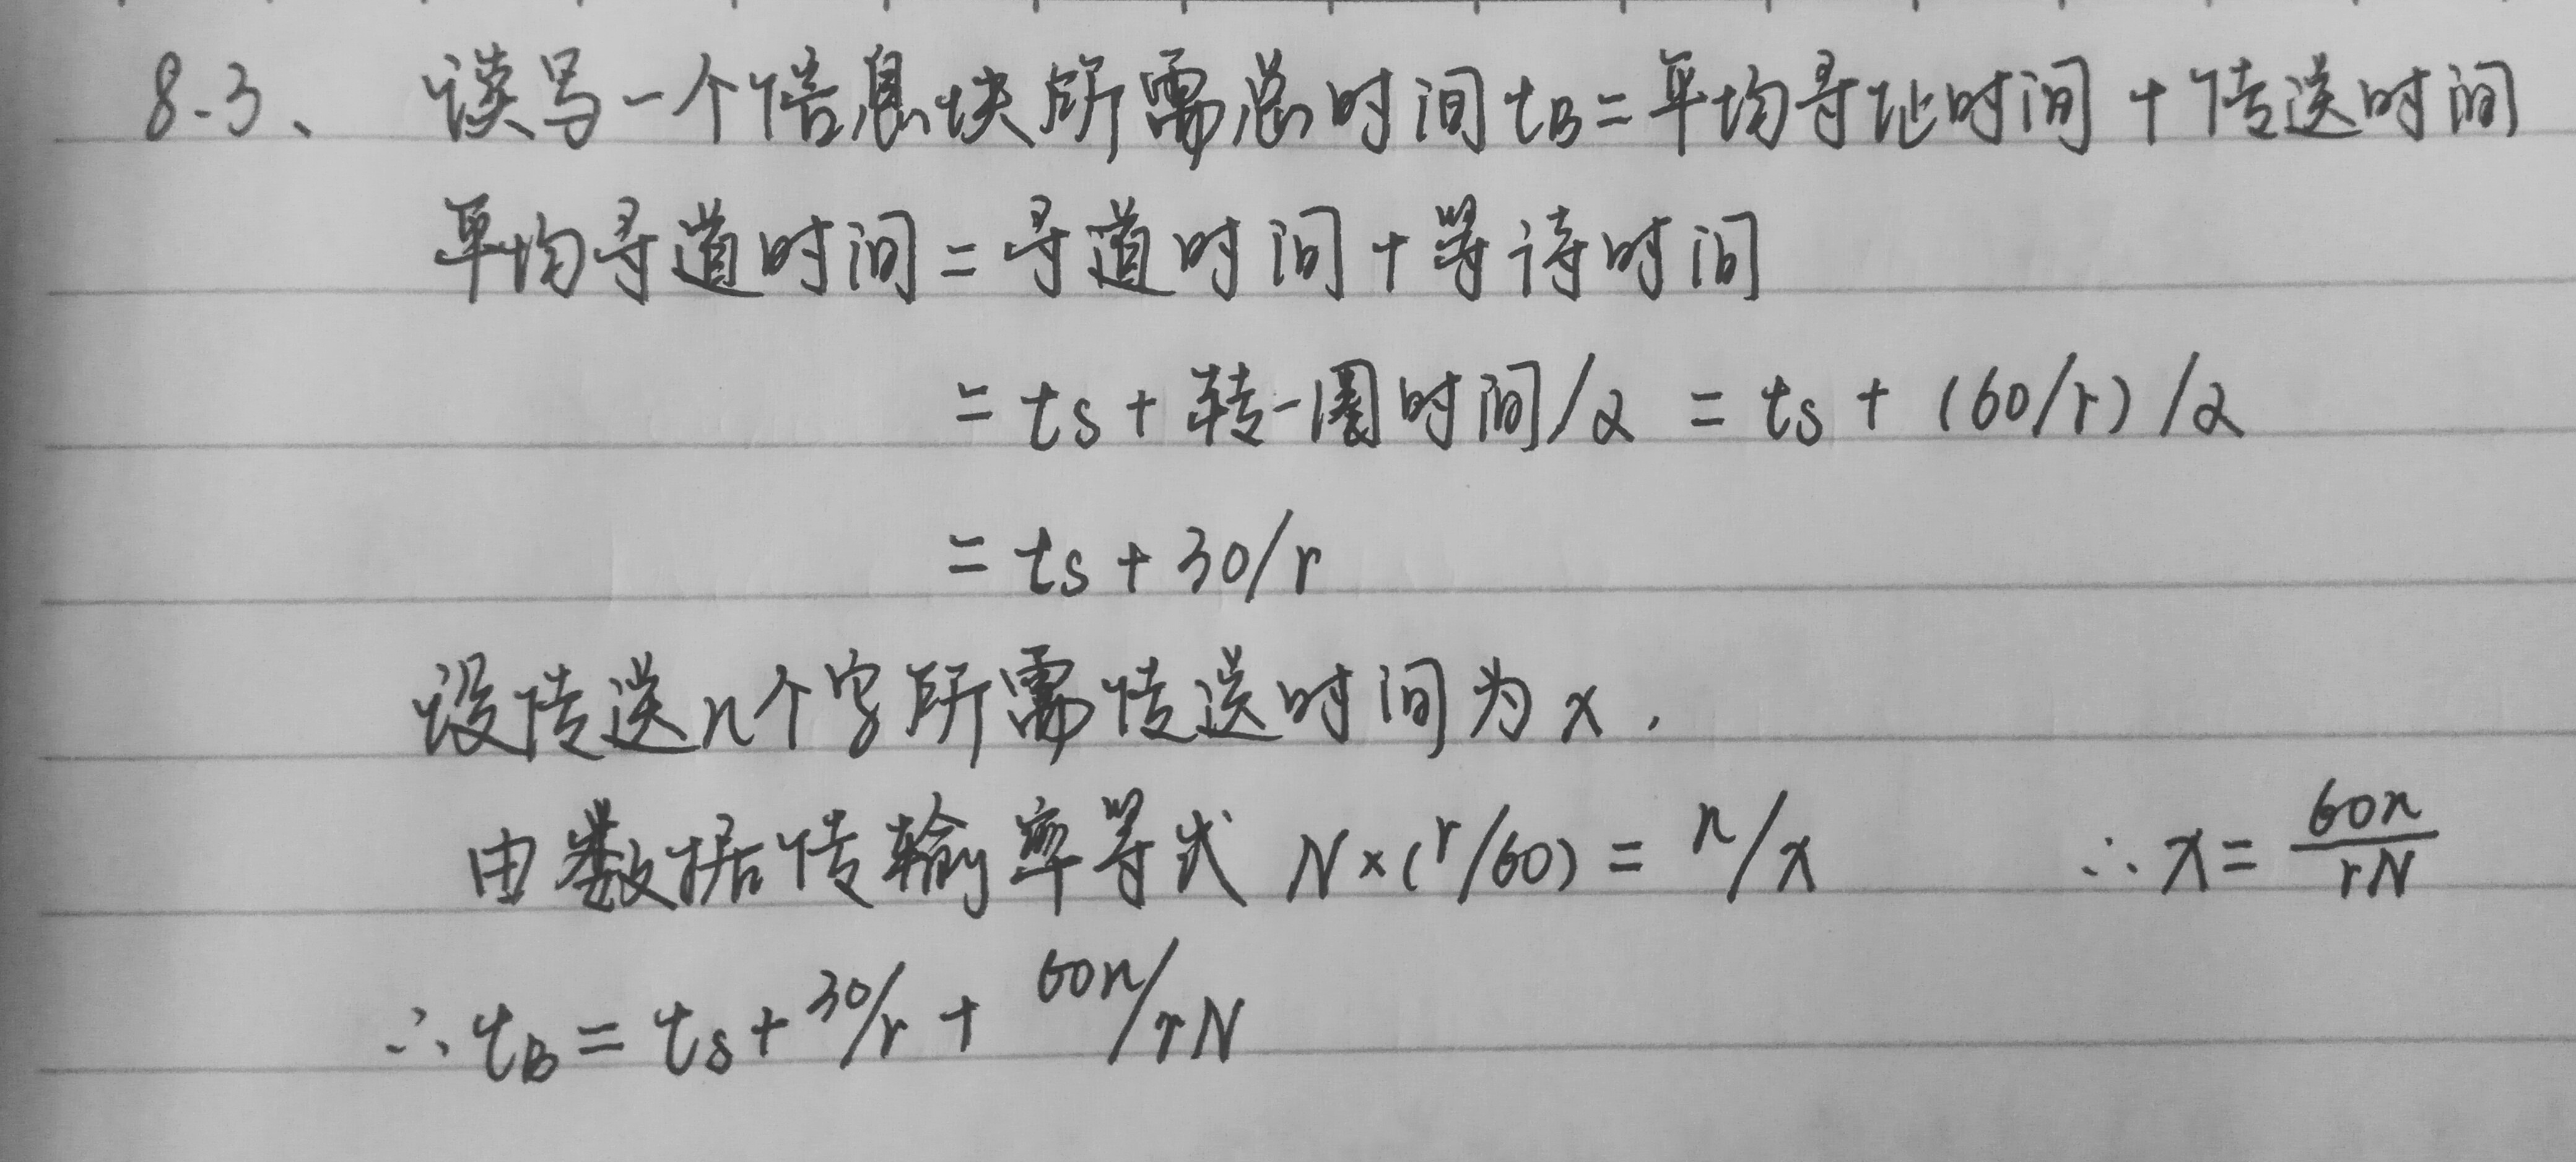 8-3、 读写一个信息块所需总时间tB=平均寻址时间+传送时间
平均寻道时间=寻道时间+等待时间
=ts+转一圈时间/2=ts+(60/r)/2
=ts+30/r
设传送n个字所需传送时间为x.
由数据传输率等式 N×(r/60)=n/x ∴x=60n/rN
∴tB=ts+30/r+60n/rN